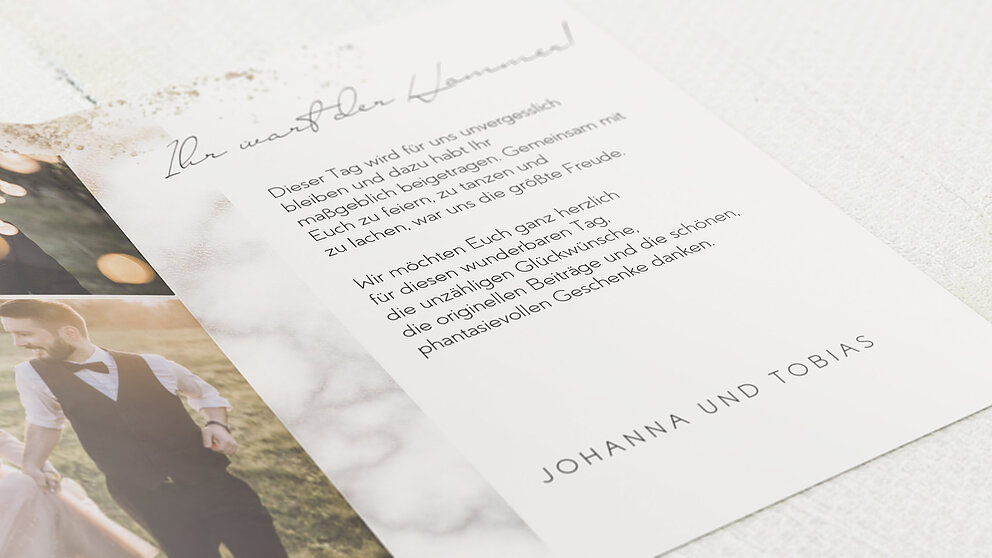 Ihr wart der Hammer!
Dieser Tag wird für uns unvergesslich
bleiben und dazu habt Ihr
maßgeblich beigetragen. Gemeinsam mit
Euch zu feiern, zu tanzen und
zu lachen, war uns die größte Freude.
Wir möchten Euch ganz herzlich
für diesen wunderbaren Tag,
die unzähligen Glückwünsche,
die originellen Beiträge und die schönen,
phantasievollen Geschenke danken.
JOHANNA UND TOBIAS